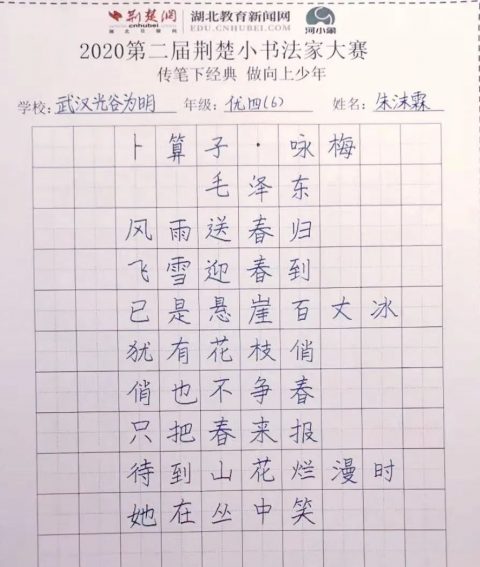 荆楚网 湖北教育新闻网 河小象
cnhubei EDU.CNHUBEI.COM
2020第二届荆楚小书法家大赛
传笔下经典 做向上少年
学校:武汉光谷为明 年级:优四(6) 姓名:朱沫霖
卜算子·咏梅
毛泽东
风雨送春归
飞雪迎春到
已是悬崖百丈冰
犹有花枝俏
俏也不争春
只把春来报
待到山花烂漫时
她在丛中笑